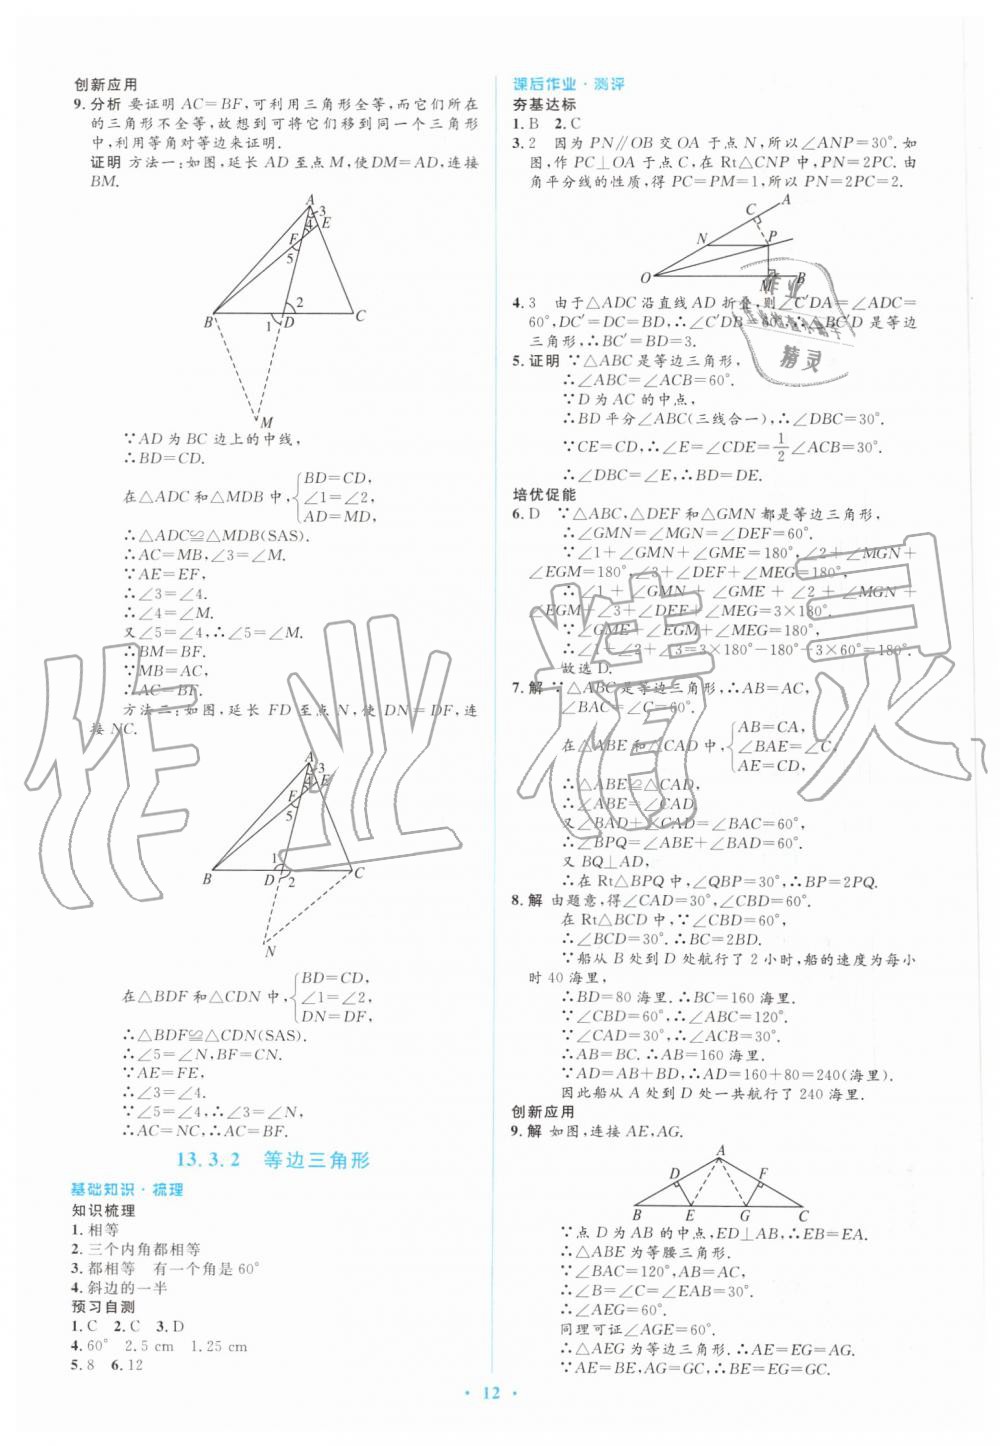 创新应用
9.分析 要证明 AC=BF,可利用三角形全等,而它们所在
的三角形不全等,故想到可将它们移到同一个三角形
中,利用等角对等边来证明.
证明 方法一:如图,延长 AD 至点 M,使DM=AD,连接
BM.
A
3
4
E
F
5
2
B
1
D
C
M
∵AD 为 BC 边上的中线,
∴BD=CD.
在△ADC 和△MDB 中,{BD=CD,
∠1=∠2,
AD=MD,
∴△ADC≌△MDB(SAS).
∴AC=MB,∠3=∠M.
∵AE=EF,
∴∠3=∠4.
∴∠4=∠M.
又∠5=∠4,∴∠5=∠M.
∴BM=BF.
∵MB=AC,
∴AC=BF.
方法二:如图,延长 FD 至点 N,使 DN=DF,连
接 NC.
A
3
4
E
F
5
1
B
D
2
C
N
在△BDF 和△CDN 中,{BD=CD,
∠1=∠2,
DN=DF,
∴△BDF≌△CDN(SAS).
∴∠5=∠N,BF=CN.
∵AE=FE,
∴∠3=∠4.
∵∠5=∠4,∴∠3=∠N.
∴AC=NC,∴AC=BF.
13.3.2 等边三角形
基础知识·梳理
知识梳理
1.相等
2.三个内角都相等
3.都相等 有一个角是 60°
4.斜边的一半
预习自测
1.C 2.C 3.D
4.60° 2.5 cm 1.25 cm
5.8 6.12
课后作业·测评
夯基达标
1.B 2.C
3.2 因为 PN∥OB 交 OA 于点 N,所以∠ANP=30°.如
图,作 PC⊥OA 于点 C,在 Rt△CNP 中,PN=2PC.由
角平分线的性质,得 PC=PM=1,所以 PN=2PC=2.
A
C
N
P
O
M
B
4.3 由于△ADC 沿直线 AD 折叠,则∠C'DA=∠ADC=
60°,DC'=DC=DB,∴∠C'DB=60°,∴△BC'D 是等边
三角形,∴BC'=BD=3.
5.证明 ∵△ABC 是等边三角形,
∴∠ABC=∠ACB=60°.
∵D 为 AC 的中点,
∴BD 平分∠ABC(三线合一),∴∠DBC=30°.
∵CE=CD,∴∠E=∠CDE=1/2∠ACB=30°.
∴∠DBC=∠E,∴BD=DE.
培优促能
6.D ∵△ABC,△DEF 和△GMN 都是等边三角形,
∴∠GMN=∠MGN=∠DEF=60°.
∵∠1+∠GMN+∠GME=180°,∠2+∠MGN+
∠EGM=180°,∠3+∠DEF+∠MEG=180°,
∴∠1+∠GMN+∠GME+∠2+∠MGN+
∠EGM+∠3+∠DEF+∠MEG=3×180°.
∵∠GME+∠EGM+∠MEG=180°,
∴∠1+∠2+∠3=3×180°-180°-3×60°=180°.
故选 D.
7.解 ∵△ABC 是等边三角形,∴AB=AC,
∠BAC=∠C=60°.
在△ABE 和△CAD 中,{AB=CA,
∠BAE=∠C,
AE=CD,
∴△ABE≌△CAD.
∴∠ABE=∠CAD.
又∠BAD+∠CAD=∠BAC=60°,
∴∠BPQ=∠ABE+∠BAD=60°.
又 BQ⊥AD,
∴在 Rt△BPQ 中,∠QBP=30°,∴BP=2PQ.
8.解 由题意,得∠CAD=30°,∠CBD=60°.
在 Rt△BCD 中,∵∠CBD=60°,
∴∠BCD=30°.∴BC=2BD.
∵船从 B 处到 D 处航行了 2 小时,船的速度为每小
时 40 海里,
∴BD=80 海里.∴BC=160 海里.
∵∠CBD=60°,∴∠ABC=120°.
∵∠CAD=30°,∴∠ACB=30°.
∴AB=BC.∴AB=160 海里.
∵AD=AB+BD,∴AD=160+80=240(海里).
因此船从 A 处到 D 处一共航行了 240 海里.
创新应用
9.解 如图,连接 AE,AG.
A
D
F
B
E
G
C
∵点 D 为 AB 的中点,ED⊥AB,∴EB=EA.
∴△ABE 为等腰三角形.
∵∠BAC=120°,AB=AC,
∴∠B=∠C=∠EAB=30°.
∴∠AEG=60°.
同理可证∠AGE=60°.
∴△AEG 为等边三角形.∴AE=EG=AG.
∵AE=BE,AG=GC,∴BE=EG=GC.
· 12 ·
作业精灵
作业
精灵